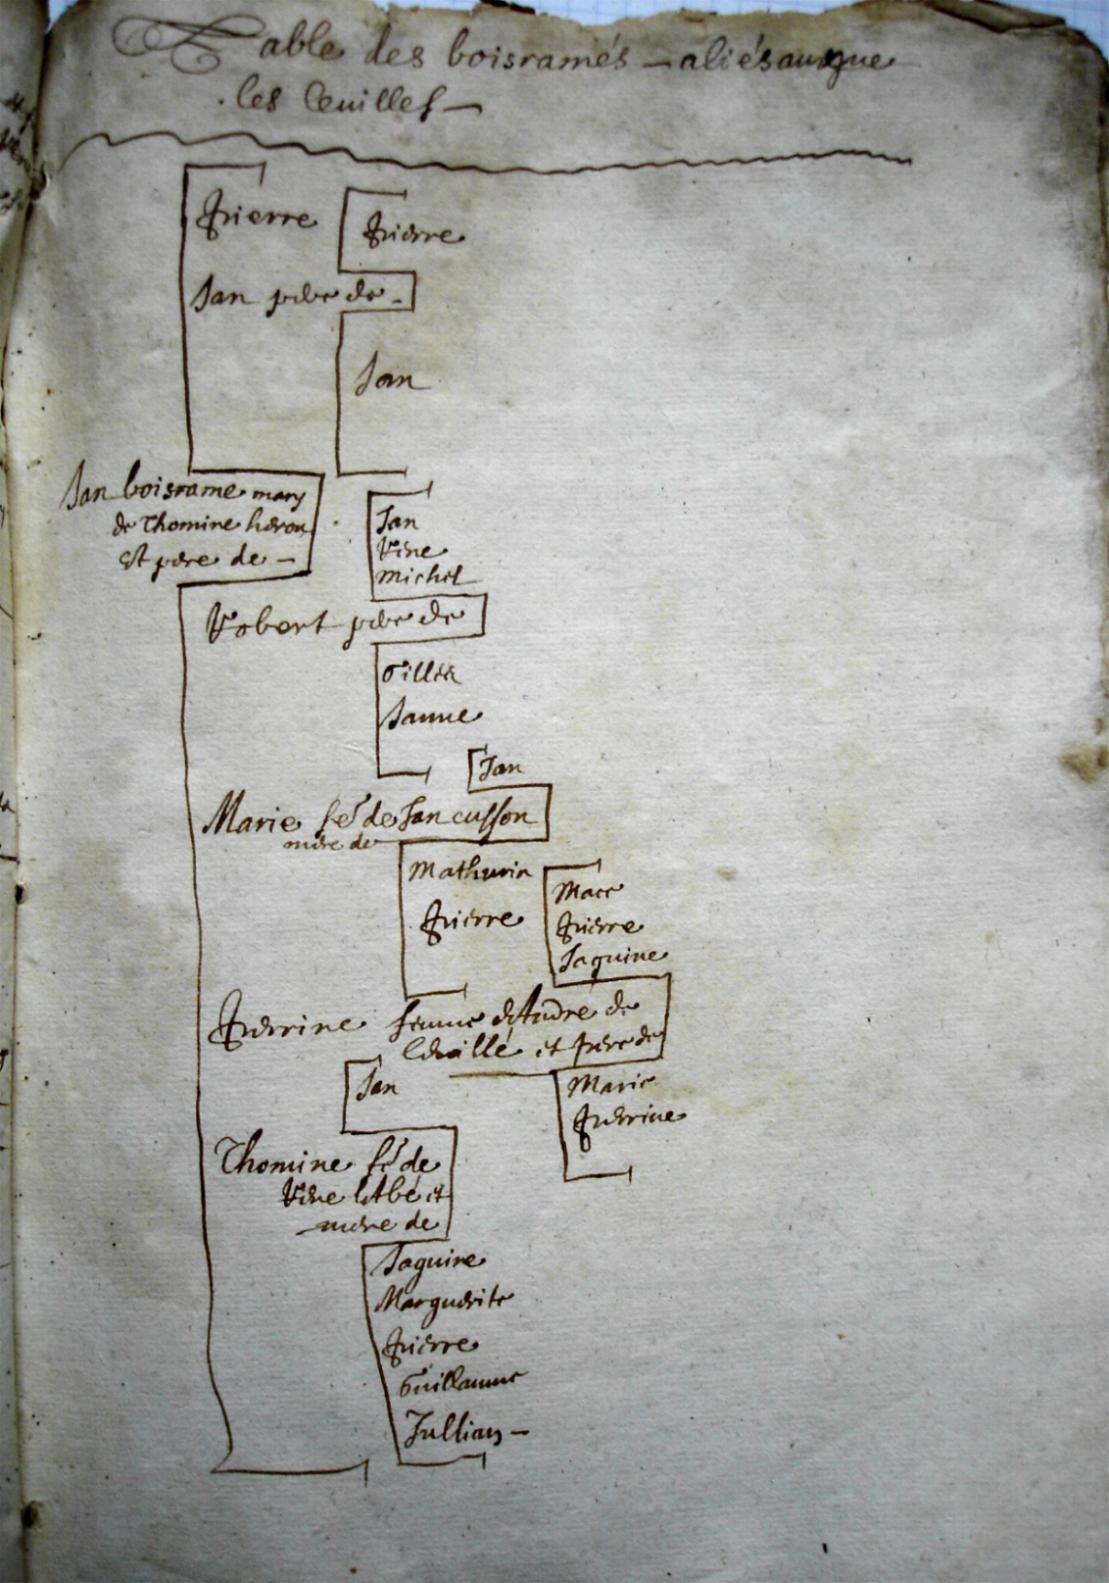 Table des boisramés - aliésauque
les Leuilles -
Pierre
Pierre
Jan pere de -
Jan
Jan boisrame mary
de Thomine heron
est pere de -
Jan
Rene
Michel
Robert pere de
Gilles
Janne
Jan
Marie fe de Jan cusson
mere de
Mathurin
Pierre
Mace
Pierre
Jaquine
Perrine femme d'Andre de
Leuillé et pere de
Marie
Perrine
Jan
Thomine fe de
Rene et
mere de
Jaquine
Marguerite
Pierre
Guillaume
Jullian -